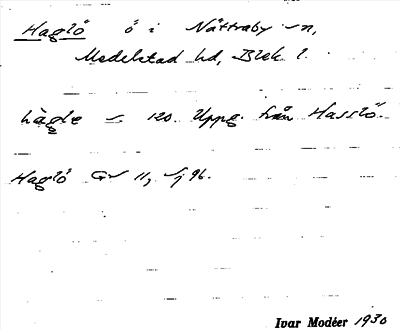 Haglö ö i Nättraby sn,
Medelstad hd, Blek l.
hàglə 120. Uppg. från Hasslö.
Haglö GS 11, Sj 96.
Ivar Modéer 1930